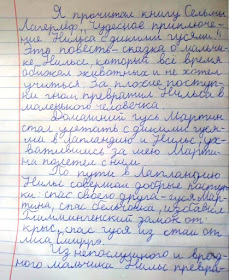 Я прочитал книгу Сельмы
Лагерлёф "Чудесное приключе-
ние Нильса с дикими гусями".
Это повесть-сказка о мальчи-
ке Нильсе, который всё время
обижал животных и не хотел
учиться. За плохие поступ-
ки гном превратил Нильса в
маленького человечка.
Домашний гусь Мартин
стал улетать с дикими гуся-
ми в Лапландию и Нильс, ух-
ватившись за шею Марти-
на полетел с ним.
По пути в Лапландию
Нильс совершал добрые поступ-
ки: спас своего друга - гуся Мар-
тина, спас бельчонка, избавил
Глиммингенский замок от
крыс, спас гуся из стаи от
лиса Смирре.
Из непослушного и вред-
ного мальчика Нильс превра-